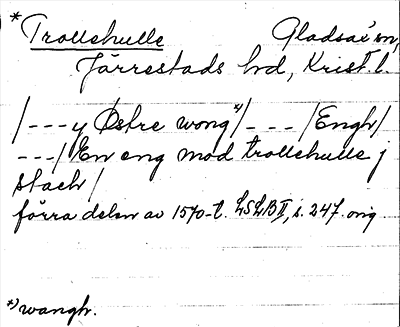 *Trollehulle Gladsax sn,
Järrestads hd, Krist. l.
/---y Østre wong*)/--- /Engh/
---/ En eng mod trollehulle j
stach/
förra delen av 1570-t. LSLB II, s. 247. orig
*) wangh.